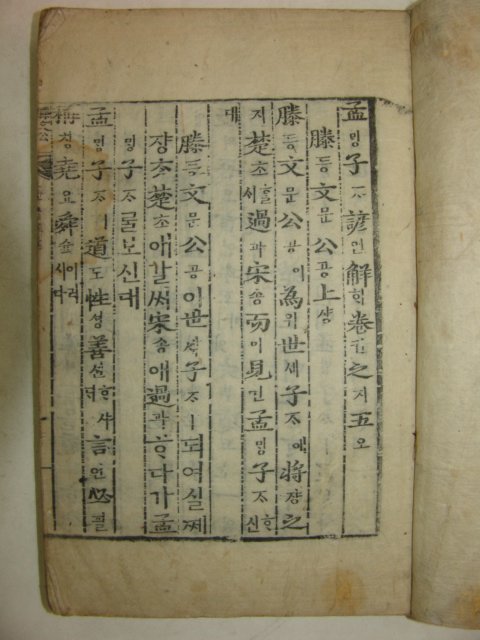 孟ᄆᆡᆼ子ᄌᆞ諺언解ᄒᆡ卷권之지五오
滕등文문公공上샹
滕등文문公공이爲위世셰子ᄌᆞ에將쟝之
지楚초ᄒᆞᆯᄉᆡ過과宋송而이見孟ᄆᆡᆼ子ᄌᆞᄒᆞ신
대
滕등文문公공이世셰子ᄌᆞㅣ되여실ᄶᅦ
쟝ᄎᆞ楚초애갈ᄊᆡ宋송애過과ᄒᆞ다가孟
ᄆᆡᆼ子ᄌᆞ를보신대
孟ᄆᆡᆼ子ᄌᆞㅣ道도性셩善션ᄒᆞ샤ᄃᆡ言언必필
稱칭堯요舜슌이러시다